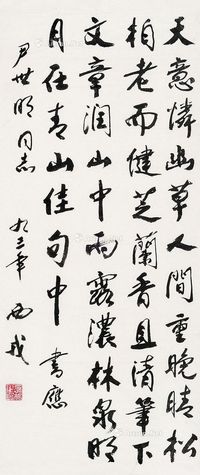 天意怜幽草人间重晚晴松
柏老而健芝兰香且清笔下
文章润山中雨露浓林泉明
月在青山佳句中 书应
尹世明同志 九三年 西戎